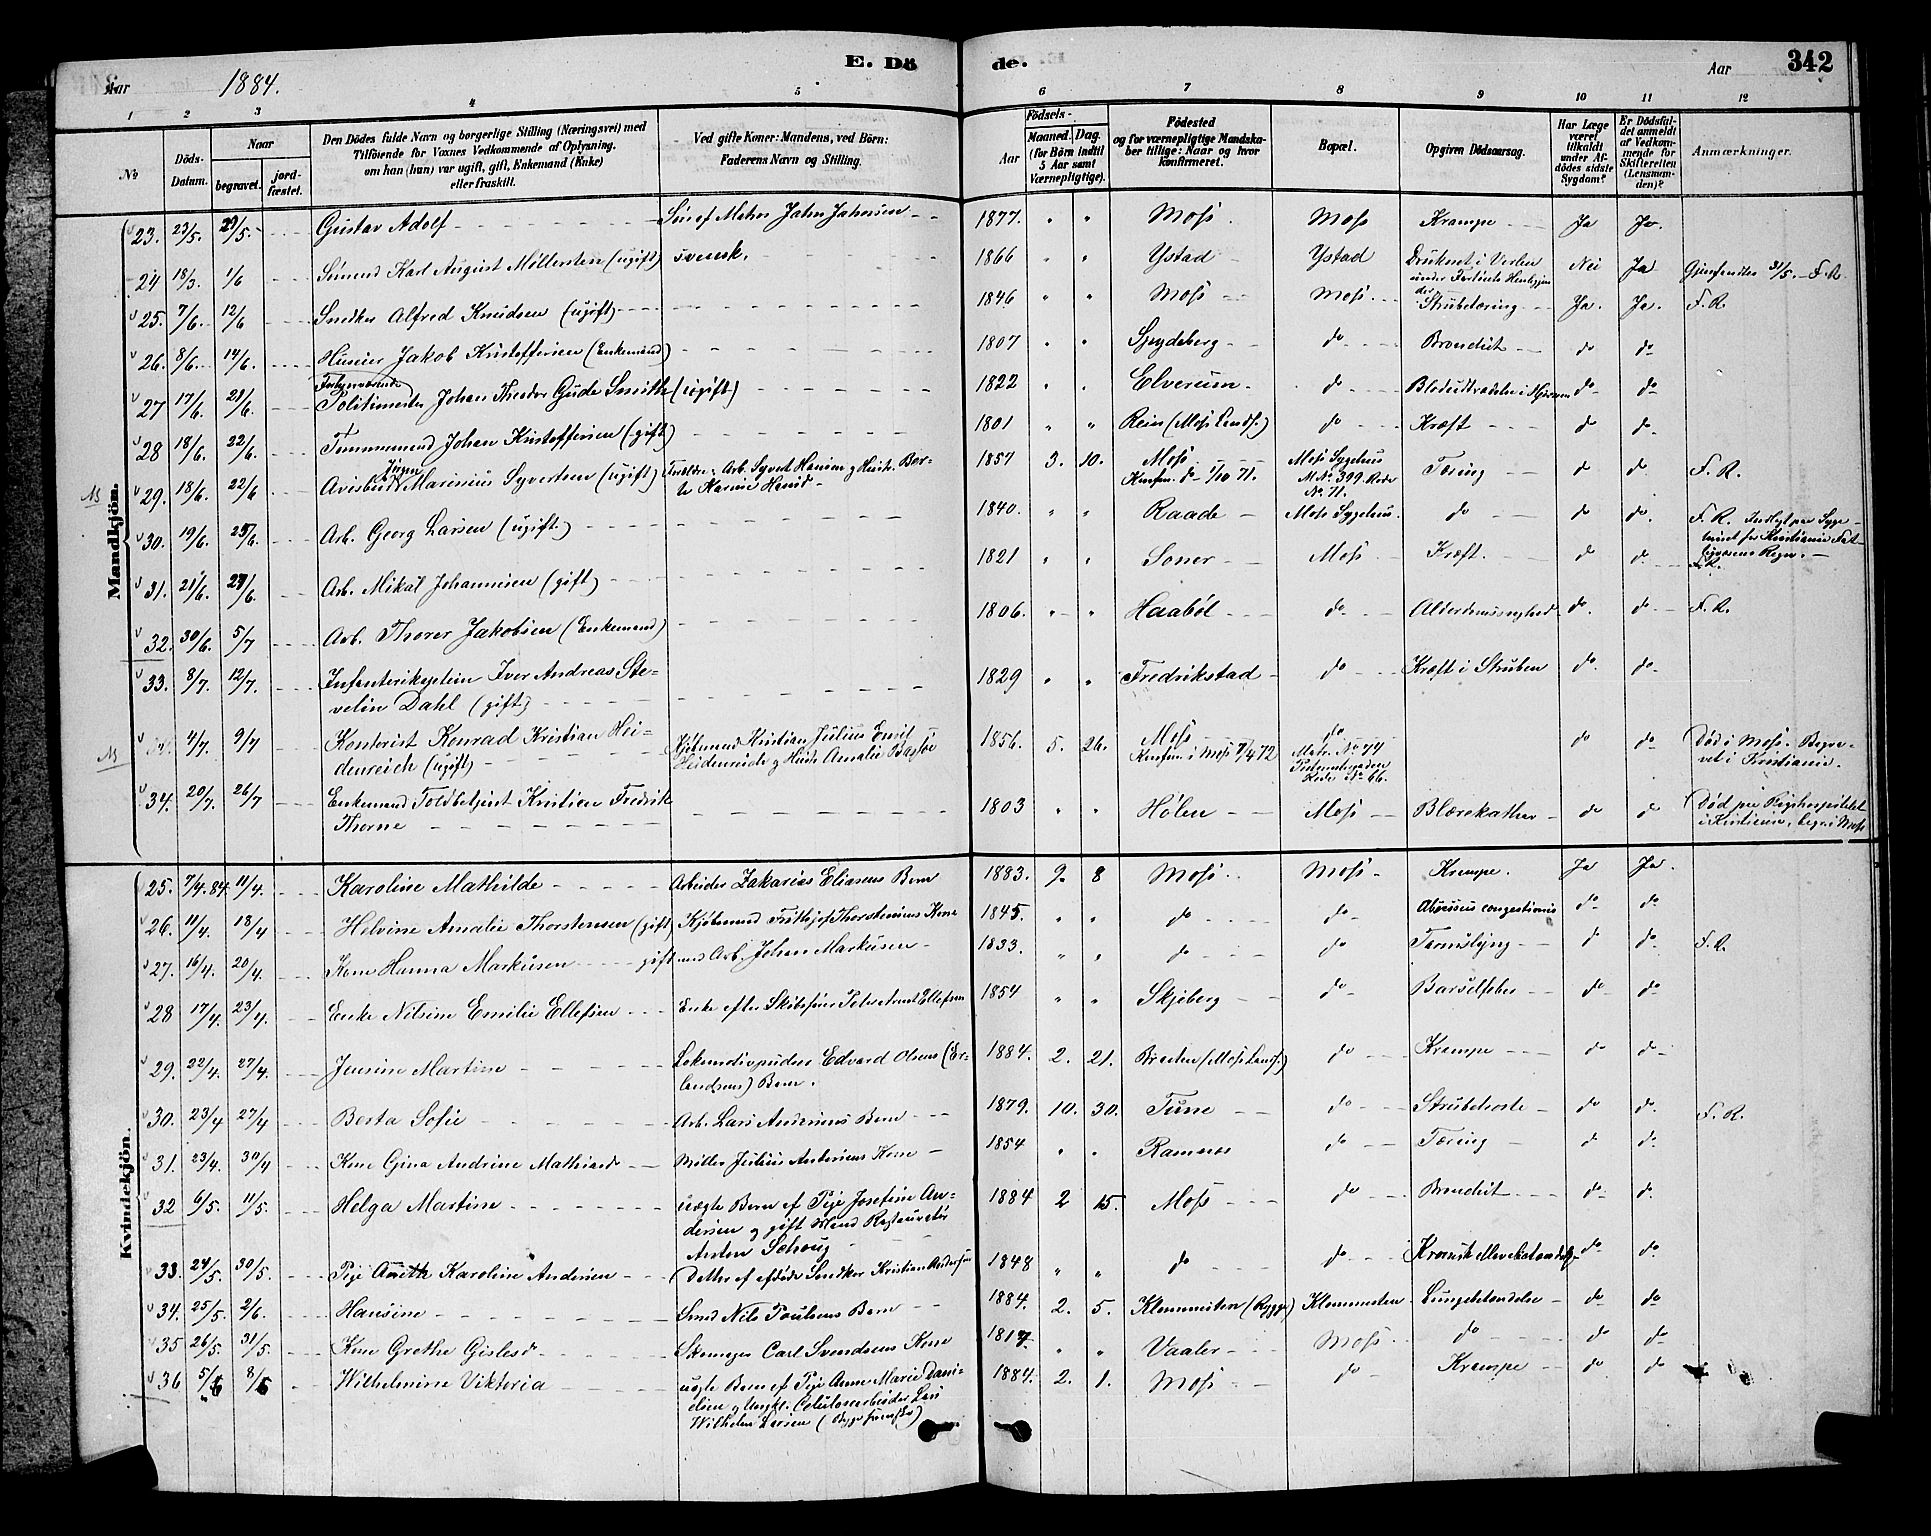 E. Dö de. 342
Aar 1884. Aar
1 2 3 4 5 6 7 8 9 10 11 12
No
Döds-Datum.
Naar
begravet.
jordfæstet.
Den Dödes fulde Navn og borgerlige Stilling (Næringsvei) med
Tilföiende for Voxnes Vedkommende af Oplysning.
om han (hun) var ugift, gift, Enkemand (Enke)
eller fraskilt.
Ved gifte Koner: Mandens, ved Börn:
Faderens Navn og Stilling.
Födsels-
Aar
Maaned. Dag.
(for Börn indtil
5 Aar samt
Værnepligtige).
Födested
og for værnepligtige Mandskaber
tillige: Naar og hvor
konfirmeret.
Bopæl.
Opgiven Dödsaarsag.
Har Læge
været
tilkaldt
under Afdödes
sidste
Sygdom?
Er Dödsfaldet
anmeldt
af Vedkommende
for
Skifteretten
(Lensmanden)?
Anmærkninger.
Mandkjön.
23. 23/5. 29/5. Gustav Adolf Søn af Matros Johan Johansen 1877. " " Moss. Moss Krampe Ja Ja.
24 18/3. 1/6 Sømand Karl August Møllersten (ugift) svensk. 1866 " " Ystad Ystad Druknet i Verlen Nei Ja Gjenfundet 31/5. F. R.
25. 7/6. 12/6 Snedker Alfred Knudsen (ugift) 1846 " " Moss Moss. Strubetæring Ja. Ja. F. R.
26. 8/6. 14/6. Huseier Jakob Kristoffersen (Enkemand) 1807 " " Spydeberg do Bronchit do do
27 17/6. 21/6. Forhenværende
Politimester Johan Theodor Gude Smith (ugift) 1822 " " Elverum. do Blodudtrædelse i Hjernen do do
28 18/6. 22/6. Tømmermand Johan Kristoffersen (gift) 1801 " " Reier (Moss Lands.) do Kræft do do
29. 18/6. 22/6 Avisbud Jörgen Marinius Syvertsen (ugift) Forældre: Arb. Syvert Hansen g Hustr. Berte Karine Hansd 1857 3. 10. Moss
Konfm. do 1/10 71. Moss Sygehus
M. No. 399. Rode
No. 71. Tæring do do F. R.
30. 19/6. 25/6. Arb. Georg Larsen (ugift.) 1840. " " Raade Moss Sygehus. do do do. F. R. Indlagt paa Sygehuset for Kristiania Fattigvæsens Regn.
31. 21/6. 27/6. Arb. Mikal Johannesen (gift) 1821 " " Soner Moss Kræft. do do F.R.
32. 30/6. 5/7 Arb. Thorer Jakobsen (Enkemand) 1806. " " Haabøl do Alderdomssvaghed do. do F. R.
33. 8/7. 12/7. Infanterikaptein Iver Andreas Stevelin Dahl (gift) 1829 " " Fredrikstad do Kræft i Struben do. do
4/7. 9/7 Kontorist Konrad Kristian Heidenreich (ugift) Kjøbmand Kristian Julius Emil
Heidenreich g Hustr. Amalie 1856. 5. 26. Moss
Konfm. i Moss 7/4 72 do
Matr. No. 74
Rode No. 66. do do Død i Moss. Begravet i Kristiania.
34. 20/7. 26/7 Enkemand Toldbetjent Kristian Fredrik
Thorne 1803 " " Hølen Moss Blærekathar do do Død paa Rigshospitalet
i Kristiania, begr. i Moss
Kvindekjön.
25. 7/4. 84. 11/4. Karoline Mathilde Arbeider Zakarias Eliasens Barn 1883. 9. 8 Moss. Moss Krampe. Ja Ja.
26. 11/4. 18/4 Helvine Amalie Thorstensen (gift) Kjøbmand Frithjof Thorstensens Kone 1845. " " do do Abscessus congestionis do do
27. 16/4. 20/4. Kone Hanna Markusen gift med Arb. Johan Markusen 1833. " " do do Tarmslyng do do. F. R.
28 17/4. 23/4. Enke Nilsine Emilie Ellefsen Enke efter Skibsfører Peter Arnt Ellefsen 1854 " " Skjeberg do Barselfeber do do
29. 22/4. 27/4. Jensine Martine Lokomotivpudser Edvard Olsens (Erlandsens) Barn. 1884. 2. 21. Braaten (Moss Lands.) do Krampe do do
30. 23/4 27/4 Berta Sofie Arb. Lars Andersens Barn 1879. 10. 30. Tune do Strubehoste do do. F. R.
31. 23/4. 30/4 Kone Gina Andrine Mathiasd Møller Julius Antonsens Kone 1854 " " Ramnes do Tæring do do.
32 6/5. 11/5. Helga Martine uægte Barn af Pige Josefine Andersen g gift Mand Restauratør
Anton Schoug 1884 2 15. Moss do Bronchit do do.
33. 24/5. 30/5. Pige Anethe Karoline Andersen Datter af afdøde Snedker Kristian Andersen 1848 " " do do Kronisk do do
34. 25/5. 2/6. Hansine Smed Nils Poulsens Barn 1884. 2. 5. Klommesten (Rygge) Klommesten Lungebetændelse do do
35 26/5. 31/5. Kone Grethe Gislesd. Skomager Carl Svendsens Kone 1817. " " Vaaler Moss. do do do
36 5/6 8/6 Wilhelmine Viktoria uægte Barn af Pige Anne Marie Danielsen g Ungkl. Celulosearbeider Lars
Wilhelm Larsen 1884. 2. 1. Moss do Krampe do do